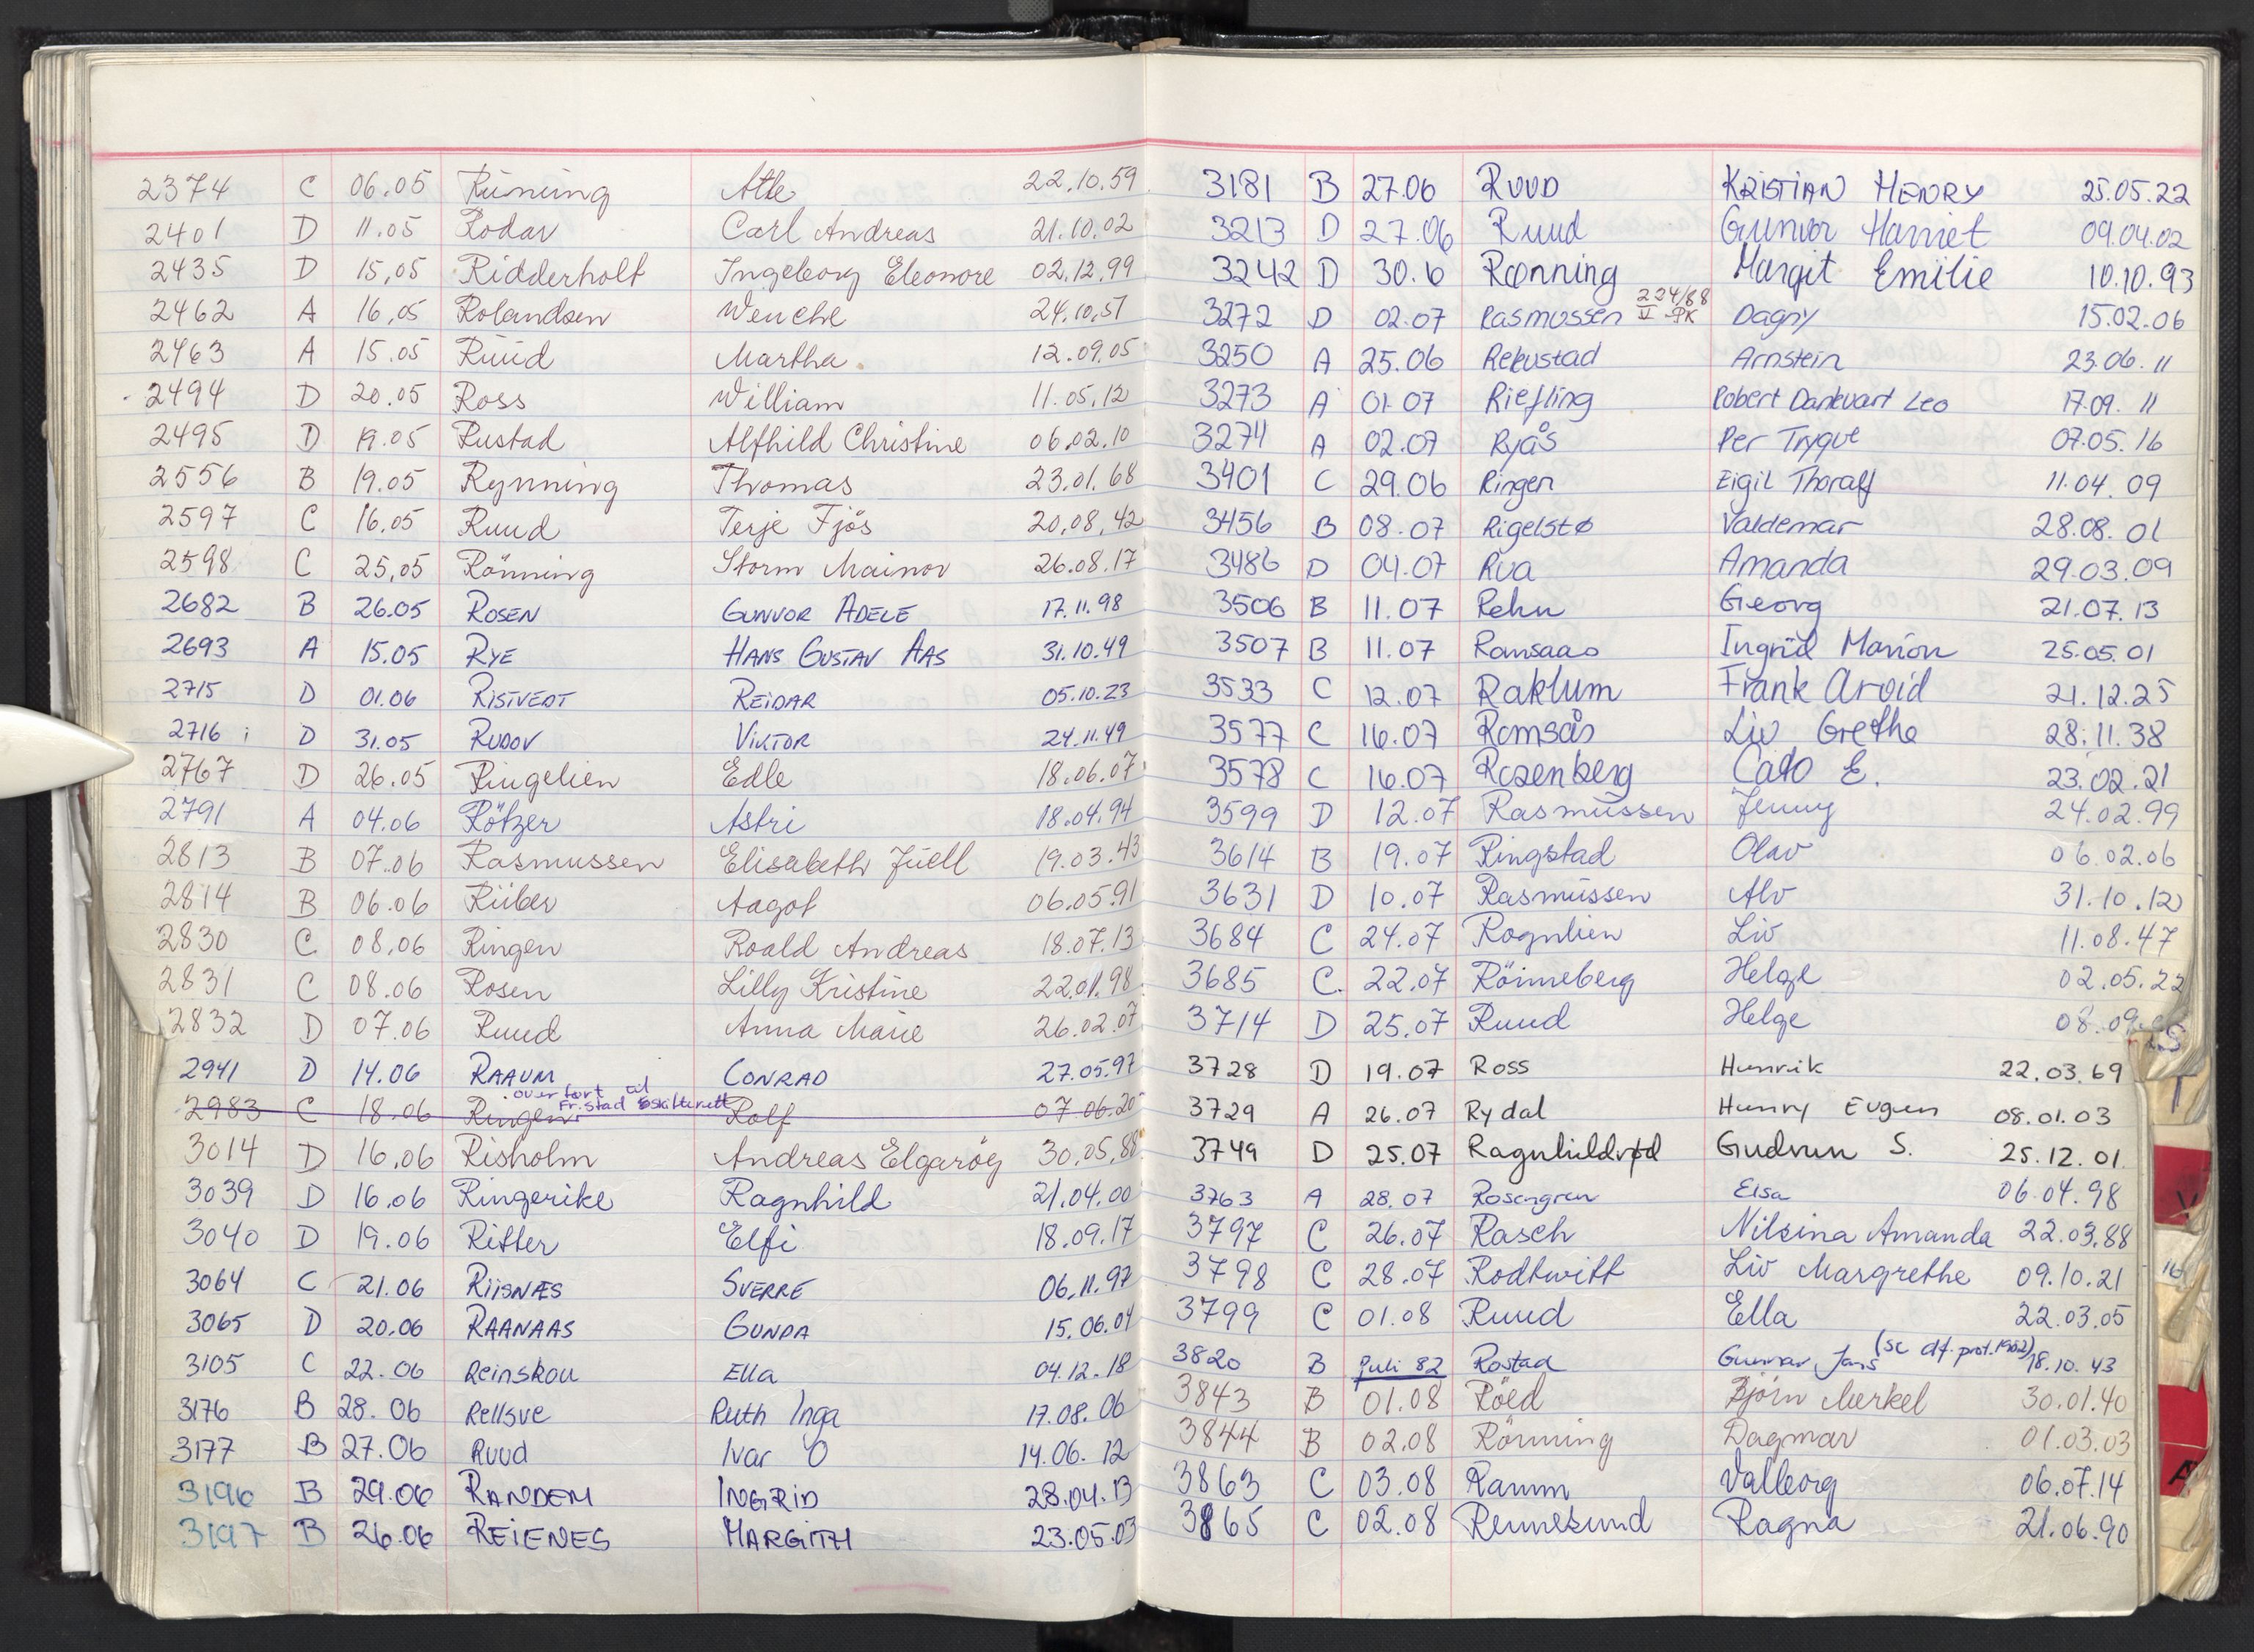 2374 C 06.05 Rünning Atle 22.10.59
2401 D 11.05 Rodar Carl Andreas 21.10.02
2435 D 15,05 Ridderholt Ingeborg Eleonore 02.12.99
2462 A 16,05 Rolandsen Wenche 24.10.51
2463 A 15.05 Ruud Martha 12.09.05
2494 D 20.05 Ross William 11.05.12
2495 D 19.05 Rustad Alfhild Christine 06.02.10
2556 B 19.05 Rynning Thomas 23.01.68
2597 C 16.05 Ruud Terje Fjøs 20,08,42
2598 C 25,05 Rönning Storm Mainor 26.08.17
2682 B 26.05 ROSEN GUNVOR ADELE 17.11.98
2693 A 15.05 RYE HANS GUSTAV AAS 31.10.49
2715 D 01.06 RISTVEDT REIDAR 05.10.23
2716 i D 31.05 RUDOV VIKTOR 24.11.49
2767 D 26.05 Ringelien Edle 18.06.07
2791 A 04.06 Rötzer Astri 18.04.94
2813 B 07.06 Rasmussen Elisabeth Juell 19.03.43
2814 B 06.06 Rüber Aagot 06.05.91
2830 C 08.06 Ringen Roald Andreas 18.07.13
2831 C 08.06 Rosen Lilly Kristine 22.01.98
2832 D 07.06 Ruud Anna Marie 26.02.07
2941 D 14.06 RAAUM CONRAD 27.05.97
overført til
Fr.stad skifterett
2983 C 18.06 Ringen Rolf 07.06.20
3014 D 16,06 Risholm Andreas Elgarøy 30,05,88
3039 D 16.06 Ringerike Ragnhild 21.04.00
3040 D 19.06 Ritter Elfi 18.09.17
3064 C 21.06 RIISNÆS SVERRE 06.11.97
3065 D 20.06 RAANAAS GUNDA 15.06.04
3105 C 22.06 Reinskou Ella 04.12.18
3176 B 28.06 Rellsve Ruth Inga 17.08.06
3177 B 27.06 Ruud Ivar O 14.06.12
3196 B 29.06 RANDEM INGRID 28.04.13
3197 B 26.06 REIENES MARGITH 23.05.03
3181 B 27.06 RUUD KRISTIAN HENRY 25.05.22
3213 D 27.06 Ruud Gunvor Harriet 09.04.02
3242 D 30.6 Rønning Margit Emilie 10.10.93
3272 D 02.07 Rasmussen 224/88 V PK Dagny 15.02.06
3250 A 25.06 Rekustad Arnstein 23.06.11
3273 A 01.07 Riefling Robert Dankvart Leo 17.09.11
3274 A 02.07 Ryås Per Trygve 07.05.16
3401 C 29.06 Ringen Eigil Thoralf 11.04.09
3456 B 08.07 Rigelstø Valdemar 28.08.01
3486 D 04.07 Rua Amanda 29.03.09
3506 B 11.07 Rehn Georg 21.07.13
3507 B 11.07 Ramsaas Ingrid Marion 25.05.01
3533 C 12.07 Raklum Frank Arvid 21.12.25
3577 C 16.07 Romsås Liv Grethe 28.11.38
3578 C 16.07 Rosenberg Cato E. 23.02.21
3599 D 12.07 Rasmussen Jenny 24.02.99
3614 B 19.07 Ringstad Olav 06.02.06
3631 D 10.07 Rasmussen Alv 31.10.12
3684 C 24.07 Rognlien Liv 11.08.47
3685 C. 22.07 Rönneberg Helge 02.05.22
3714 D 25.07 Ruud Helge 08.09
3728 D 19.07 Ross Henrik 22.03.69
3729 A 26.07 Rydal Henry Eugen 08.01.03
3749 D 25.07 Ragnhildrød Gudrun S. 25.12.01
3763 A 28.07 Rosengren Elsa 06.04.98
3797 C 26.07 Rasch Nilsina Amanda 22.03.88
3798 C 28.07 Rodtwitt Liv Margrethe 09.10.21
3799 C 01.08 Ruud Ella 22.03.05
3820 B juli 82 Rostad Gunnar Jans (se df. prot. 1982) 18.10.43
3843 B 01.08 Röed Björn Merkel 30.01.40
3844 B 02.08 Rönning Dagmar 01.03.03
3863 C 03.08 Ramm Valborg 06.07.14
3865 C 02.08 Rennesund Ragna 21.06.90